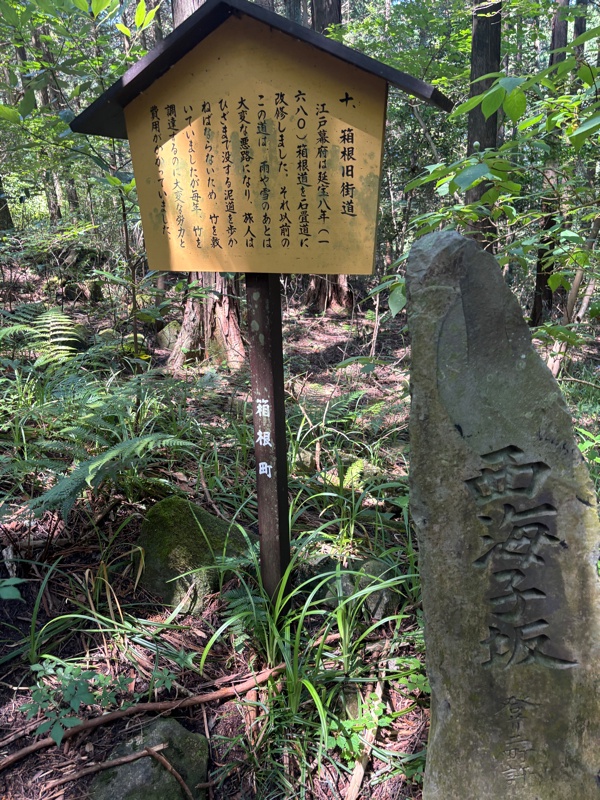 十、箱根旧街道
江戸幕府は延宝八年（一
六八〇）箱根道を石畳道に
改修しました。それ以前の
この道は、雨や雪のあとは
大変な悪路になり、旅人は
ひざまで没する泥道を歩か
ねばならないため、竹を敷
いていましたが毎年、竹を
調達するのに大変な労力と
費用がかかっていました。
箱根町
西海子坂